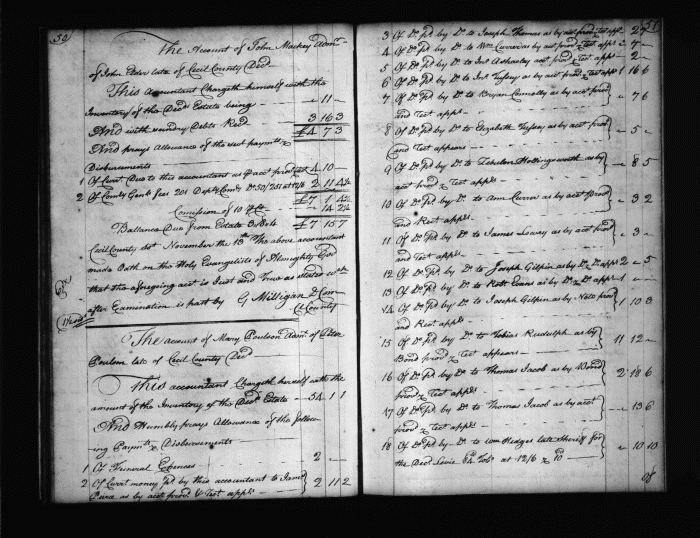 50
The Account of John Mackey Adm.r
of John Elder late of Cecil County Dec.d
This Accountant Chargeth himself with the
Inventory of the Dec.ds Estate being - 11 -
And with sundry Debts Rec.d 3 16 3
£4 7 3
And prays Allowance of the sev.l paym.ts &
Disbursements
1 Of Due to this accountant as p acc.t prov.d 4 10 -
2 Of Comdy Gen.ls fees 201 Dep.ty Comdy D.o 50/251 at 12/6 2 11 4½
£7 1 4½
Comission of 10 p C.t - 14 2½
Ballance Due from Estate 3..8..4 £7 15 7
Cecil County Sct November the 13th The above accountant
made Oath on the Holy Evangelists of Almighty God
that the aforegoing acct is Just and True as stated w.ch
after Examination is past by G Milligan D Com
C County
The Account of Mary Poulson Adm.x of Peter
Poulson late of Cecil County Dec.d
This accountant Chargeth herself with the
amount of the Inventory of the Dec.ds Estate - 54 1 1
And Humbly prays Allowance of the follow
ing Paym.ts & Disbursements
1 Of Funeral Expences 2 -
2 Of Curr.t money p.d by this accountant to James
Peirce as by acct prov.d & Test app.s 2 11 2
51
3 Of D.o p.d by D.o to Joseph Thomas as by acct prov.d & Test app.s - 2 7
4 Of D.o p.d by D.o to W.m Currer as by acct prov.d & Test app.s
5 Of D.o p.d by D.o to Jn.o acct prov.d & Test app.s - 2 -
6 Of D.o p.d by D.o to Jn.o Tussey as by acct prov.d & Test app.s 1 16 6
7 Of D.o p.d by D.o to Bryan Connolly as by acct prov.d
and Test app.s - 7 6
8 Of D.o p.d by D.o to Elizabeth Tussey as by acct prov.d
and Test appears - 5 -
9 Of D.o p.d by D.o to Zebulon Hollingsworth as by
acct prov.d & Test app.s - 8 5
10 Of D.o p.d by D.o to Ann Currer as by acct prov.d
and Rect app.s - 3 2
11 Of D.o p.d by D.o to James Lowry as by acct prov.d
and Test app.s - 3 -
12 Of D.o p.d by D.o to Joseph Gilpin as by D.o D.o app.s 2 - 5
13 Of D.o p.d by D.o to Rob.t Evans as by D.o & D.o app.s 1 - -
14 Of D.o p.d by D.o to Joseph Gilpin as by Note prov.d
and Rect app.s 1 10 3
15 Of D.o p.d by D.o to Tobias Rudulph as by
Bond prov.d & Test appears 11 12 -
16 Of D.o p.d by D.o to Thomas Jacob as by Bond
prov.d & Test app.s 2 18 6
17 Of D.o p.d by D.o to Thomas Jacob as by acct
prov.d & Test app.s - 13 6
18 Of D.o p.d by D.o to W.m Hedges late Sheriff for
the Dec.ds Levie Tob.o at 12/6 - 10 10
Of